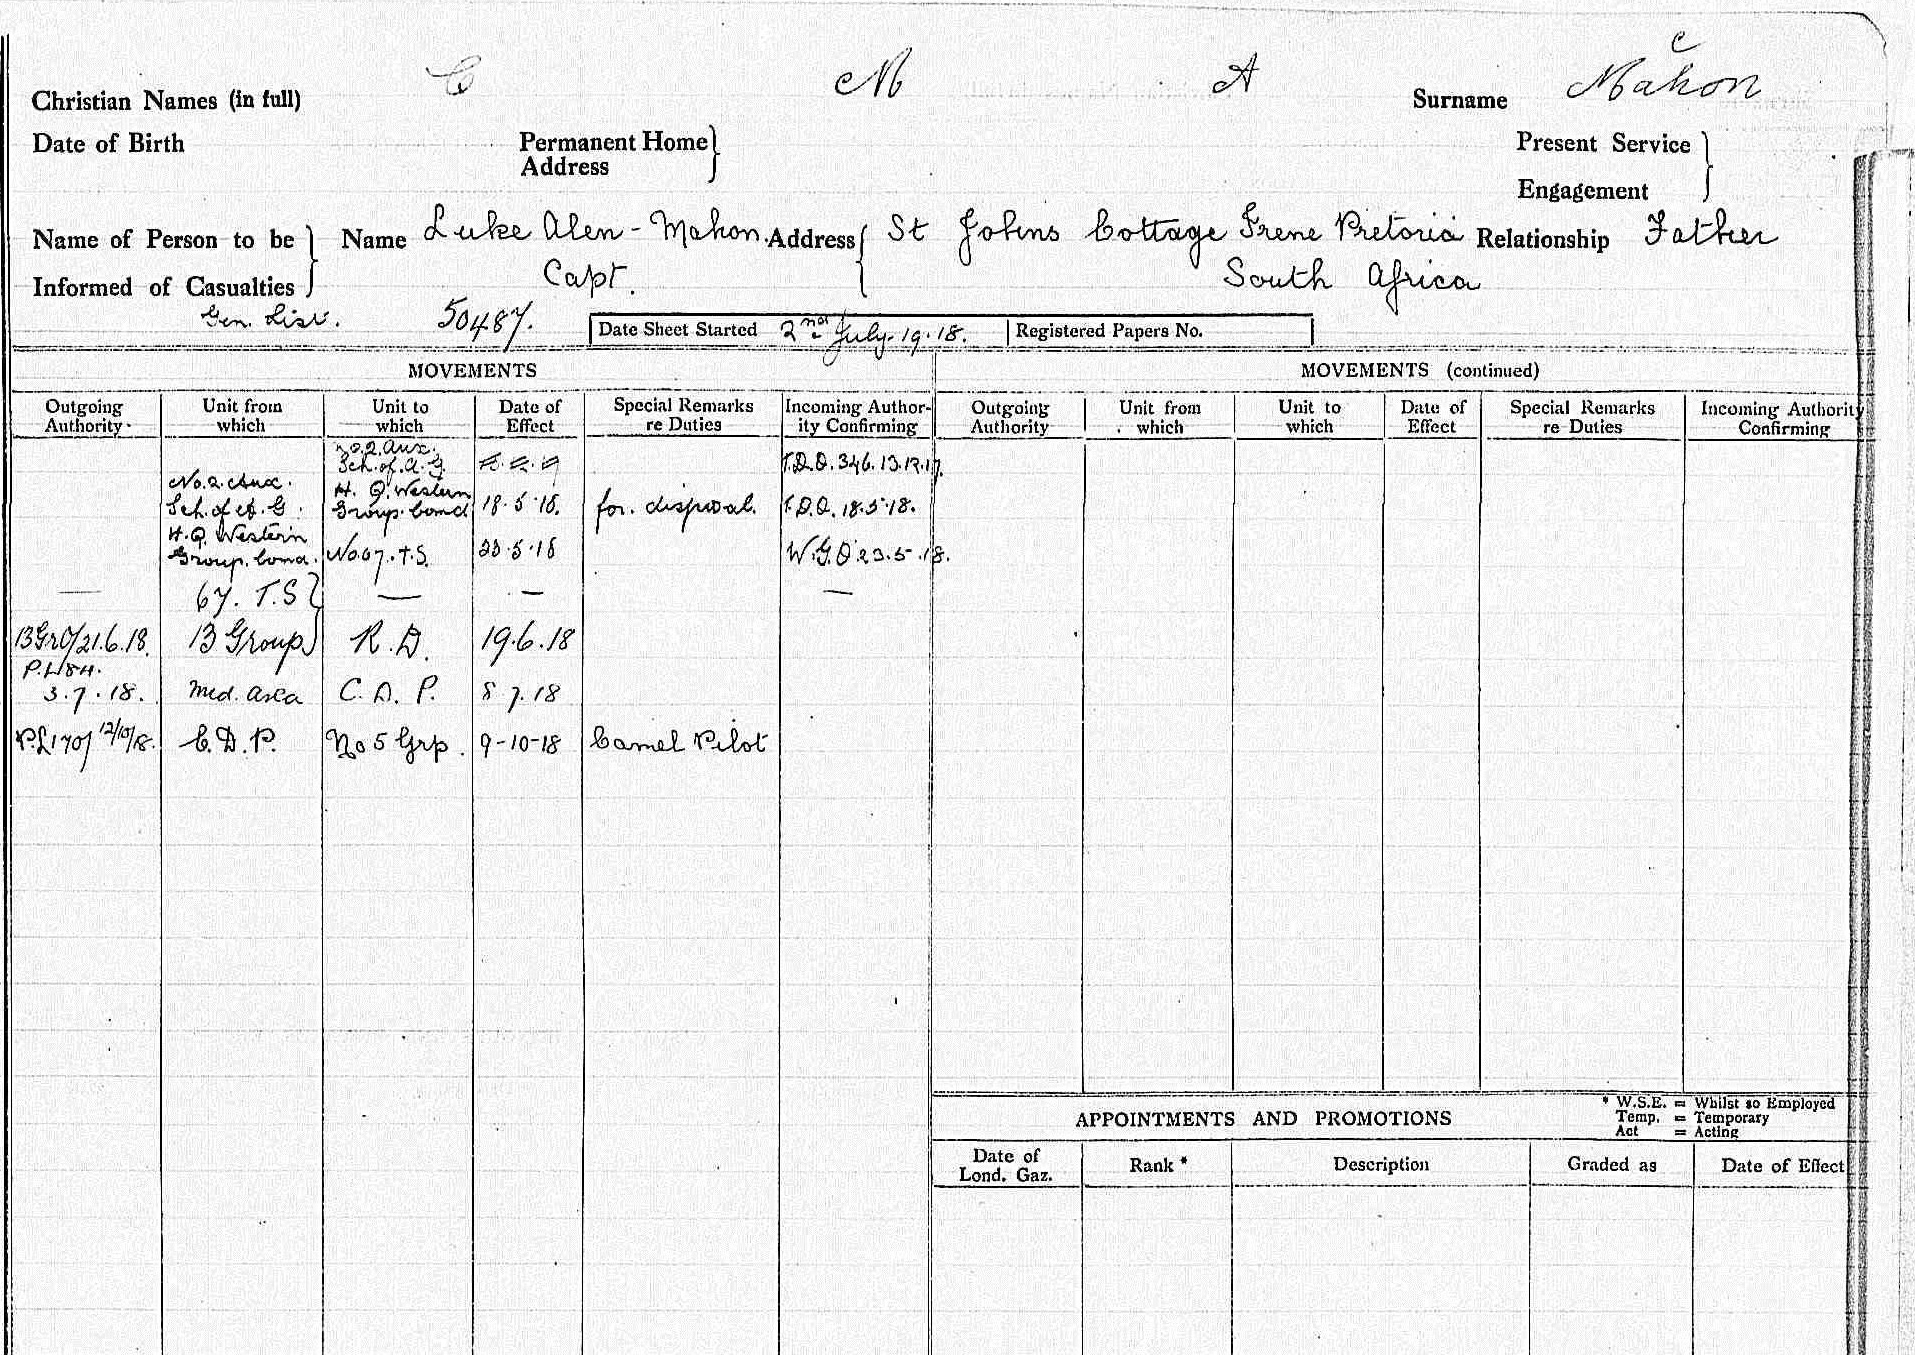 C M A Mahon
c
Christian Names (in full) Surname
Date of Birth Permanent Home Address Present Service
Engagement
Name of Person to be Informed of Casualties Name Luke Alen-Mahon. Address St Johns Cottage Irene Pretoria Relationship Father
Capt. South Africa
Gen. List. 50487. Date Sheet Started 2nd July. 19.18. Registered Papers No.
MOVEMENTS MOVEMENTS (continued)
Outgoing Authority. Unit from which Unit to which Date of Effect Special Remarks re Duties Incoming Authority Confirming Outgoing Authority Unit from which Unit to which Date of Effect Special Remarks re Duties Incoming Authority Confirming
No.2. Aux. Sch. of. A. G. T.D.O. 346. 13.12.17.
No. 2. Aux. Sch. of A. G. H. Q. Western Group. Comd 18.5.18. for. disposal. T.D.O. 18.5.18.
H. Q. Western Group. Comd. No. 67. T.S. 23.5.18 W.G.O 23.5.18.
— 67. T.S } — — —
13GrO/21.6.18. 13 Group R.D. 19.6.18
P.L/84.
3.7.18. Med. Area C.D.P. 8 7.18
P.L170/ 12/10/18. C.D.P. No 5 Grp. 9-10-18 Camel Pilot
APPOINTMENTS AND PROMOTIONS
* W.S.E. = Whilst so Employed
Temp. = Temporary
Act = Acting
Date of Lond. Gaz. Rank * Description Graded as Date of Effect